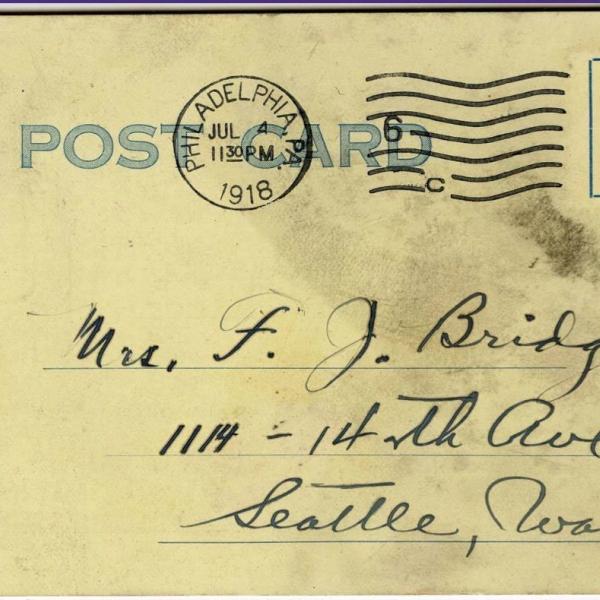 POST CARD
PHILADELPHIA, PA.
JUL 4
11 30 PM
1918
6
C
Mrs. F. J. Bridg
1114 - 14th Ave
Seattle, Wa